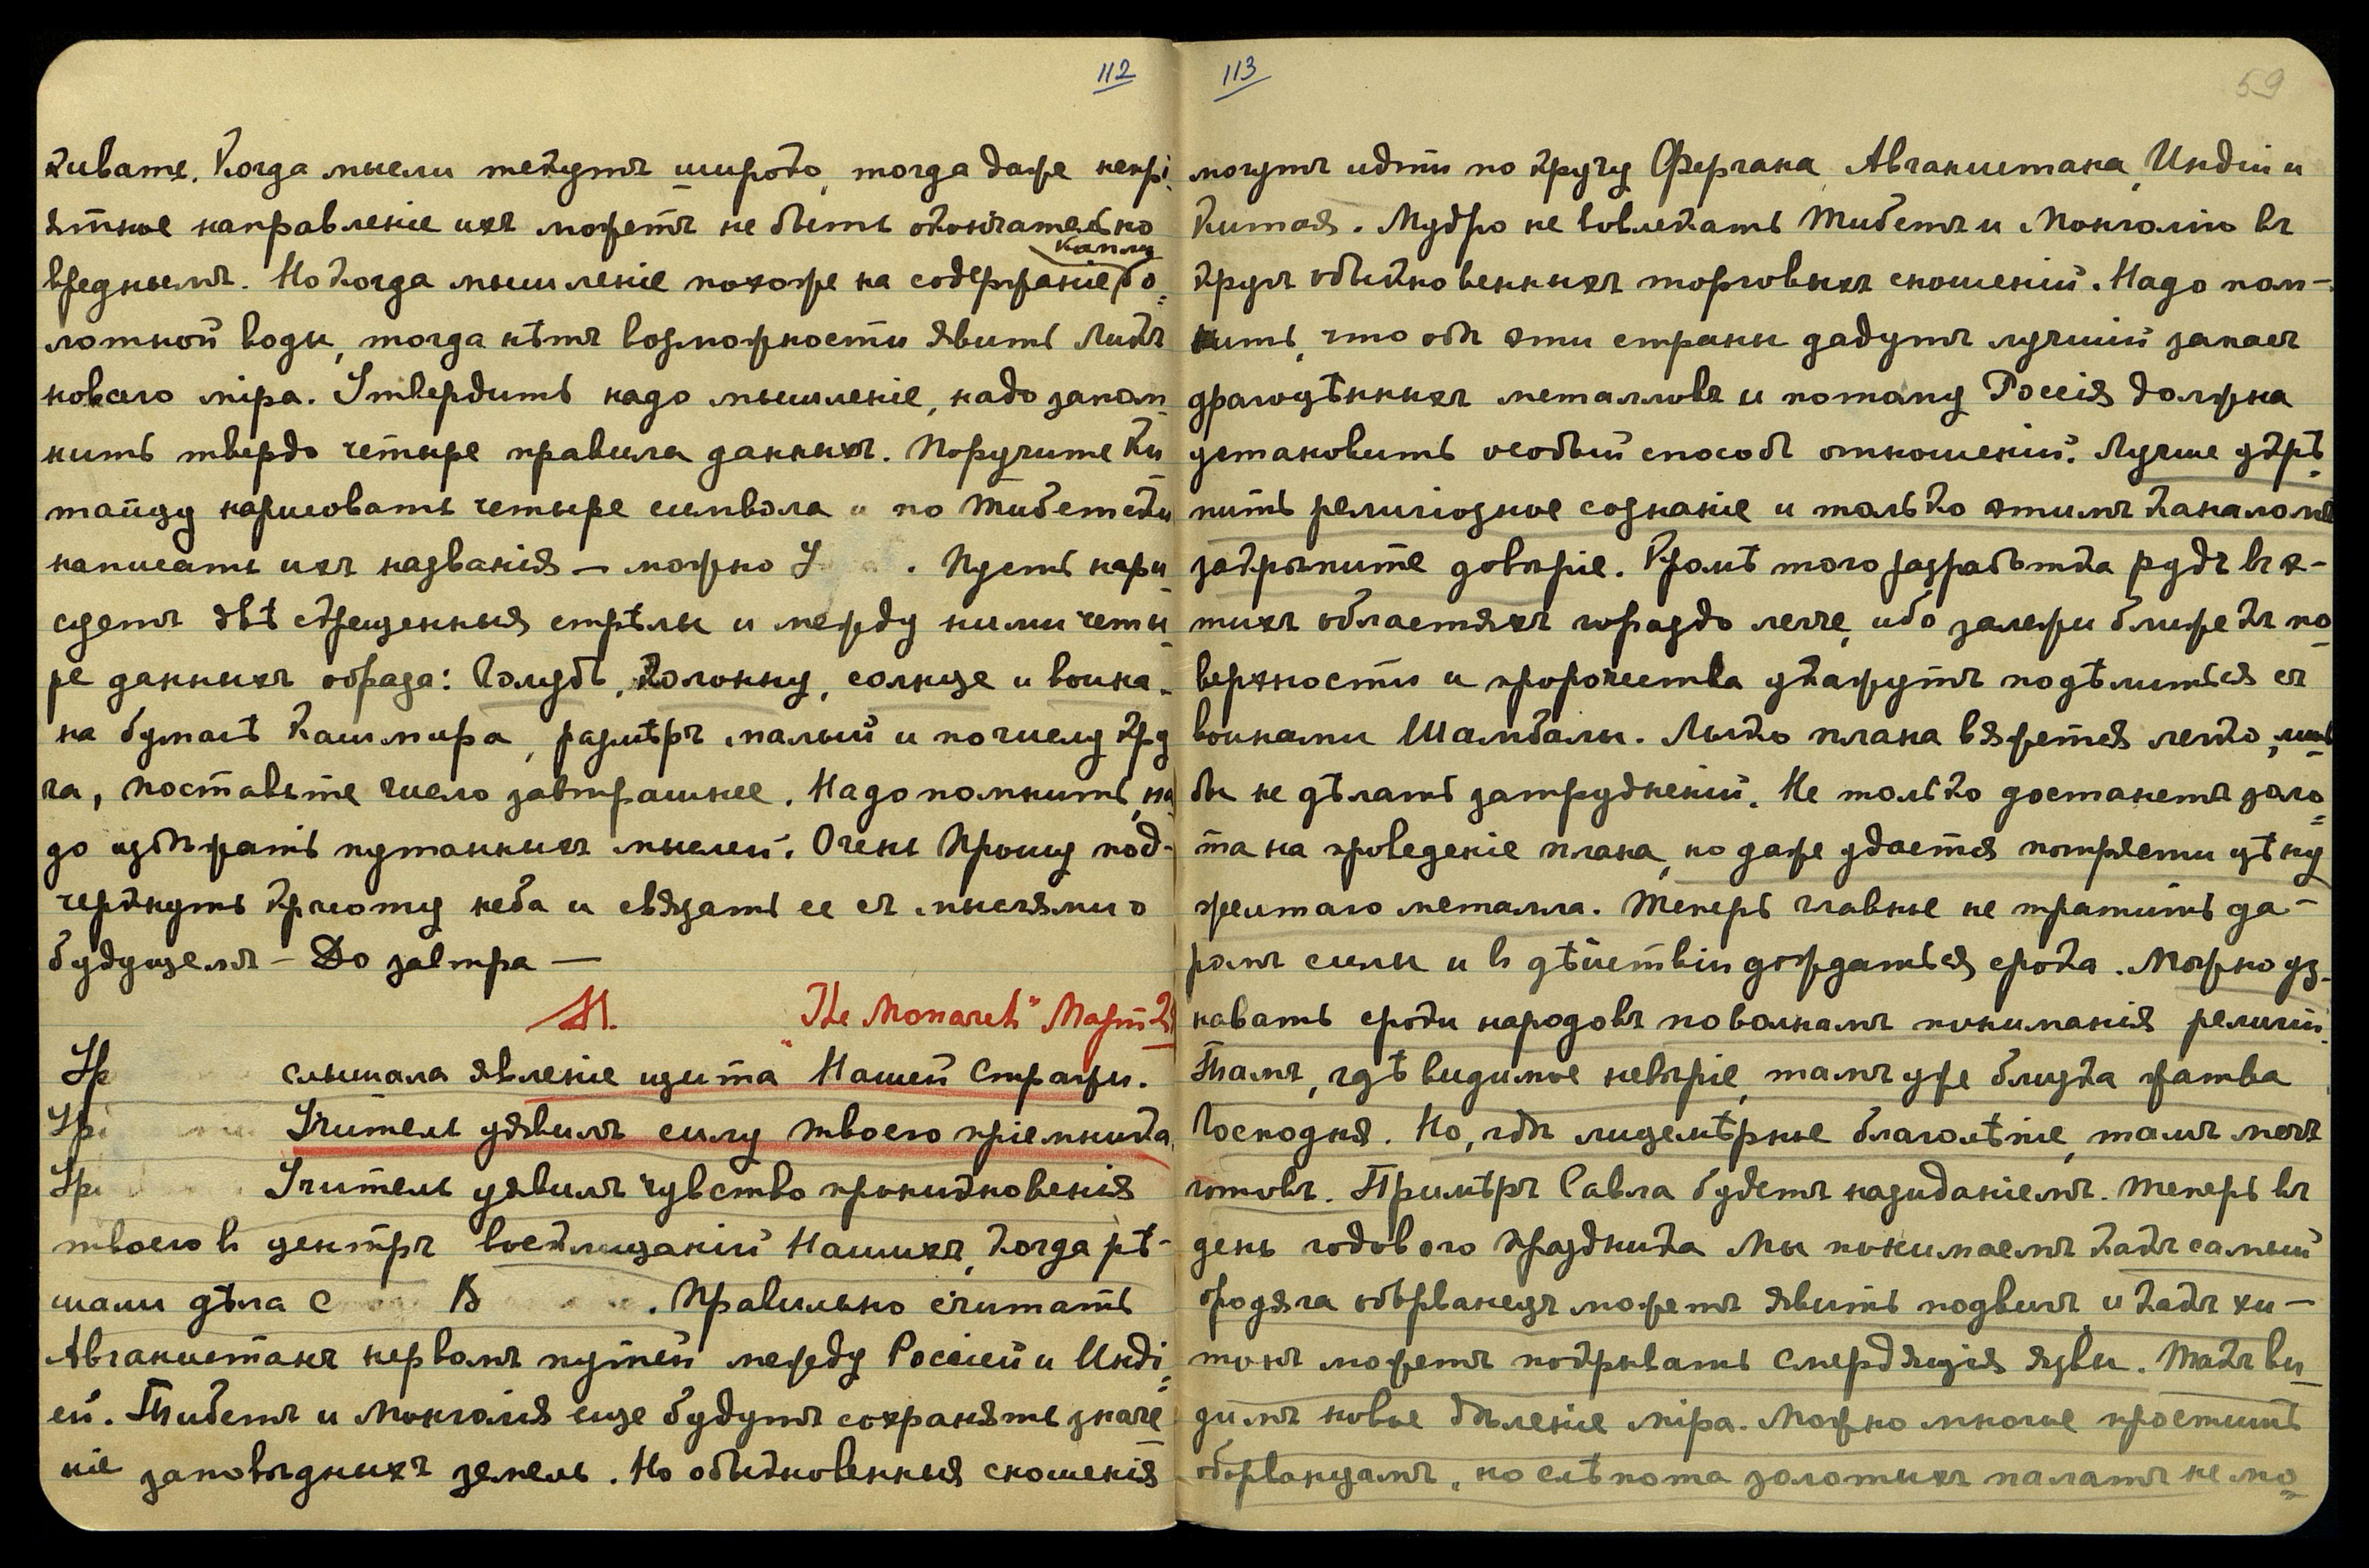 112
кивате. Когда мысли текутъ широко, тогда даже непрі-
ятное направленіе ихъ можетъ не быть окончательно
вреднымъ. Но когда мышленіе похоже на содержаніе капли бо-
лотной воды, тогда нѣтъ возможности явить ликъ
новаго міра. Утвердить надо мышленіе, надо запом-
нить твердо четыре правила данныхъ. Поручите Ки-
тайцу нарисовать четыре символа и по Тибетски
написать ихъ названія — можно У . Пусть нари-
суетъ двѣ скрещенныя стрѣлы и между ними четы-
ре данныхъ образа: Голубь, Колонну, солнце и воина.
на бумагѣ Кашмира, размѣръ малый и по числу кру
га, поставьте число завтрашнее. Надо помнить, на
до избѣжать путанныхъ мыслей. Очень прошу под-
черкнуть красоту неба и связать ее съ мыслями о
будущемъ — До завтра —
М. "The Monarch" Мартъ
Ур слышала явленіе щита Нашей Стражи.
Ур Учитель уявилъ силу твоего пріемника
Ур Учитель уявилъ чувство проникновенія
твоего въ центръ восклицаній Нашихъ, когда рѣ-
шали дѣла С В . Правильно считать
Авганистанъ нервомъ путей между Россіей и Инді-
ей. Тибетъ и Монголія еще будутъ сохранять значе-
ніе заповѣдныхъ земель. Но обыкновенныя сношенія
113
59
могутъ идти по кругу Фергана, Авганистана, Индіи и
Китая. Мудро не вовлекать Тибетъ и Монголію въ
кругъ обыкновенныхъ торговыхъ сношеній. Надо пом-
нить, что обѣ эти страны дадутъ лучшій запасъ
драгоцѣнныхъ металловъ и потому Россія должна
установить особый способъ отношеній. Лучше укрѣ-
пить религіозное сознаніе и только этимъ каналомъ
закрѣпите довѣріе. Кромѣ того разработка рудъ въ э-
тихъ областяхъ гораздо легче, ибо залежи ближе къ по-
верхности и пророчества укажутъ подѣлиться съ
воинами Шамбалы. Лыко плана вяжется легко, лишь
бы не дѣлать затрудненій. Не только достанетъ золо-
та на проведеніе плана, но даже удастся потрясти цѣну
желтаго металла. Теперь главное не тратить да-
ромъ силы и въ дѣйствіи дождаться срока. Можно уз-
навать сроки народовъ по волнамъ пониманія религіи.
Тамъ, гдѣ видимое невѣріе, тамъ уже близка жатва
Господня. Но, гдѣ лицемѣрное благолѣпіе, тамъ мечъ
готовъ. Примѣръ Савла будетъ назиданіемъ. Теперь въ
день годового праздника Мы понимаемъ какъ самый
бродяга оборванецъ можетъ явить подвигъ, и какъ хи-
тонъ можетъ покрывать смердящія язвы. Такъ ви-
димъ новое дѣленіе міра. Можно многое простить
оборванцамъ, но слѣпота золотыхъ палатъ не мо-